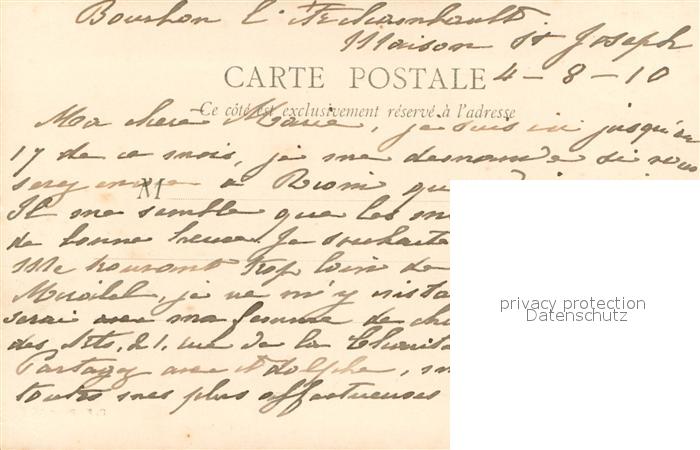 Bourbon l'Archambault
Maison St Joseph
CARTE POSTALE 4-8-10
Ce côté est exclusivement réservé à l'adresse
Ma chere Marie, je suis ici jusqu'au
17 de ce mois, je me demande si vous
serez encore à Riom
M
Il me semble que les
de bonne heure. Je souhaite
Me trouvant trop loin de
je ne m'y
serai avec ma femme
des Arts, 21, rue de la
Partagez avec Adolphe,
toutes mes plus affectueuses
privacy protection
Datenschutz